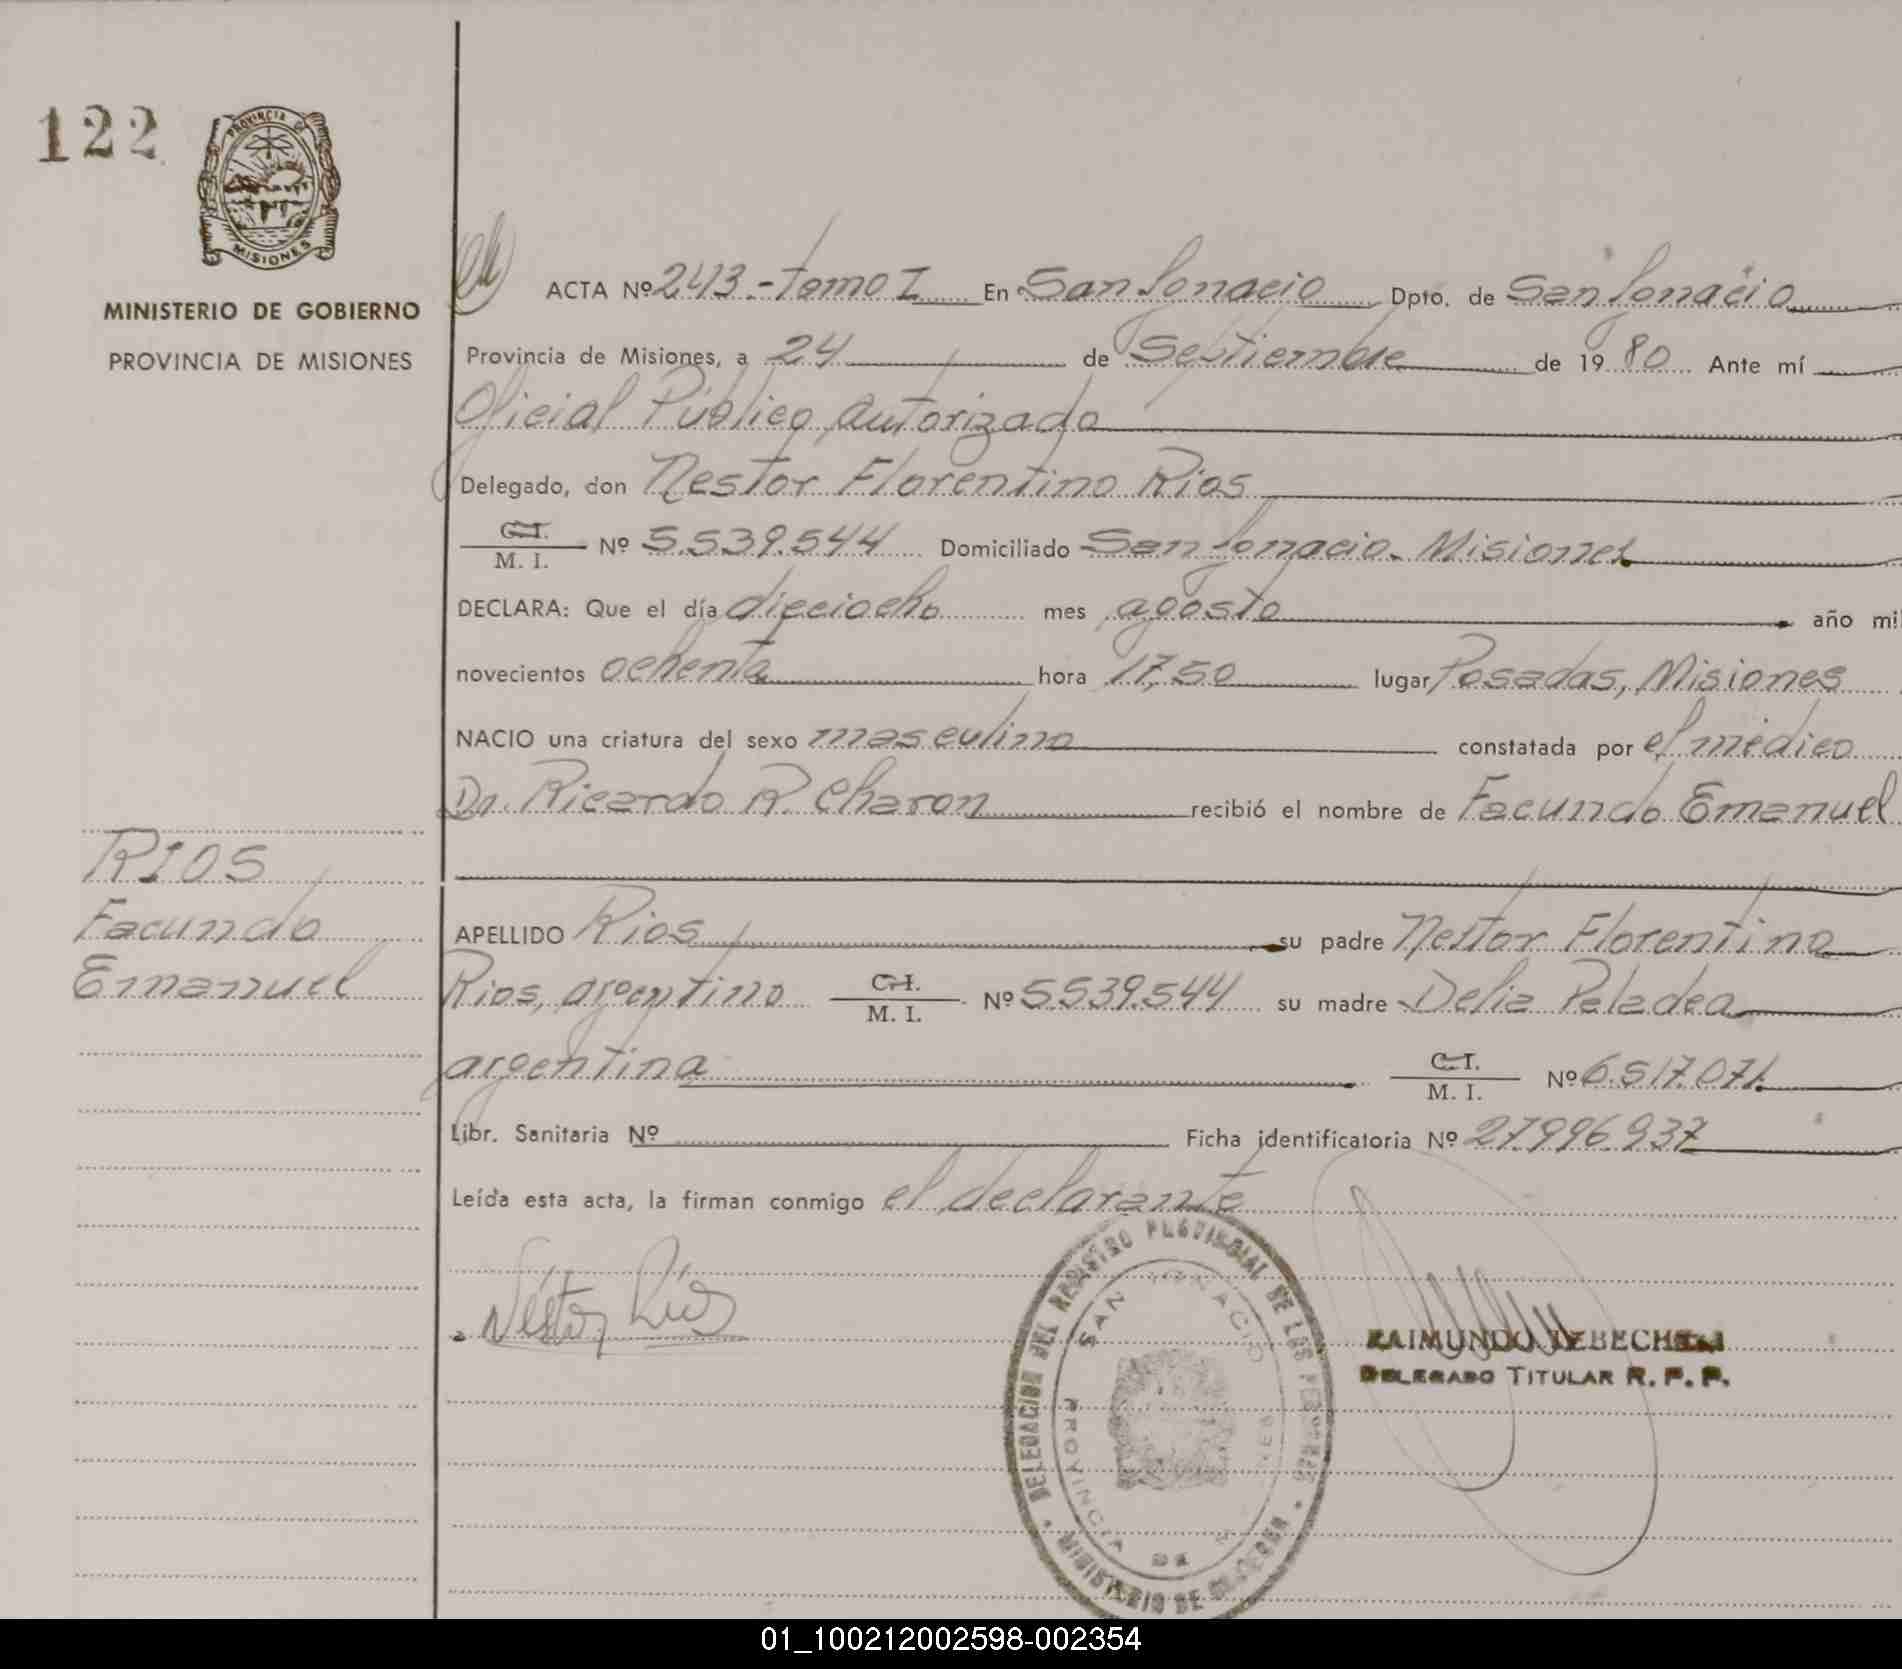 122
PROVINCIA DE
MISIONES
MINISTERIO DE GOBIERNO
PROVINCIA DE MISIONES
ACTA Nº 243.- tomo I En San Ignacio Dpto. de San Ignacio
Provincia de Misiones, a 24 de Septiembre de 1980 Ante mí
Oficial Público autorizado
Delegado, don Nestor Florentino Rios
C.I.
M. I. Nº 5.539.544 Domiciliado San Ignacio - Misiones
DECLARA: Que el día dieciocho mes agosto año mil
novecientos ochenta hora 17,50 lugar Posadas, Misiones
NACIO una criatura del sexo masculino constatada por el médico
Dr. Ricardo R. Charon recibió el nombre de Facundo Emanuel
RIOS
Facundo
Emanuel
APELLIDO Rios su padre Nestor Florentino
Rios, argentino C.I. M. I. Nº 5.539.544 su madre Delia Peladea
argentina C.I. M. I. Nº 6.517.071.
Libr. Sanitaria Nº Ficha identificatoria Nº 27.996.937
Leída esta acta, la firman conmigo el declarante
Néstor Ríos
DELEGACION DEL REGISTRO PROVINCIAL DE LAS PERSONAS
SAN IGNACIO
PROVINCIA DE MISIONES
MINISTERIO DE GOBIERNO
RAIMUNDO
DELEGADO TITULAR R. P. P.
01_100212002598-002354